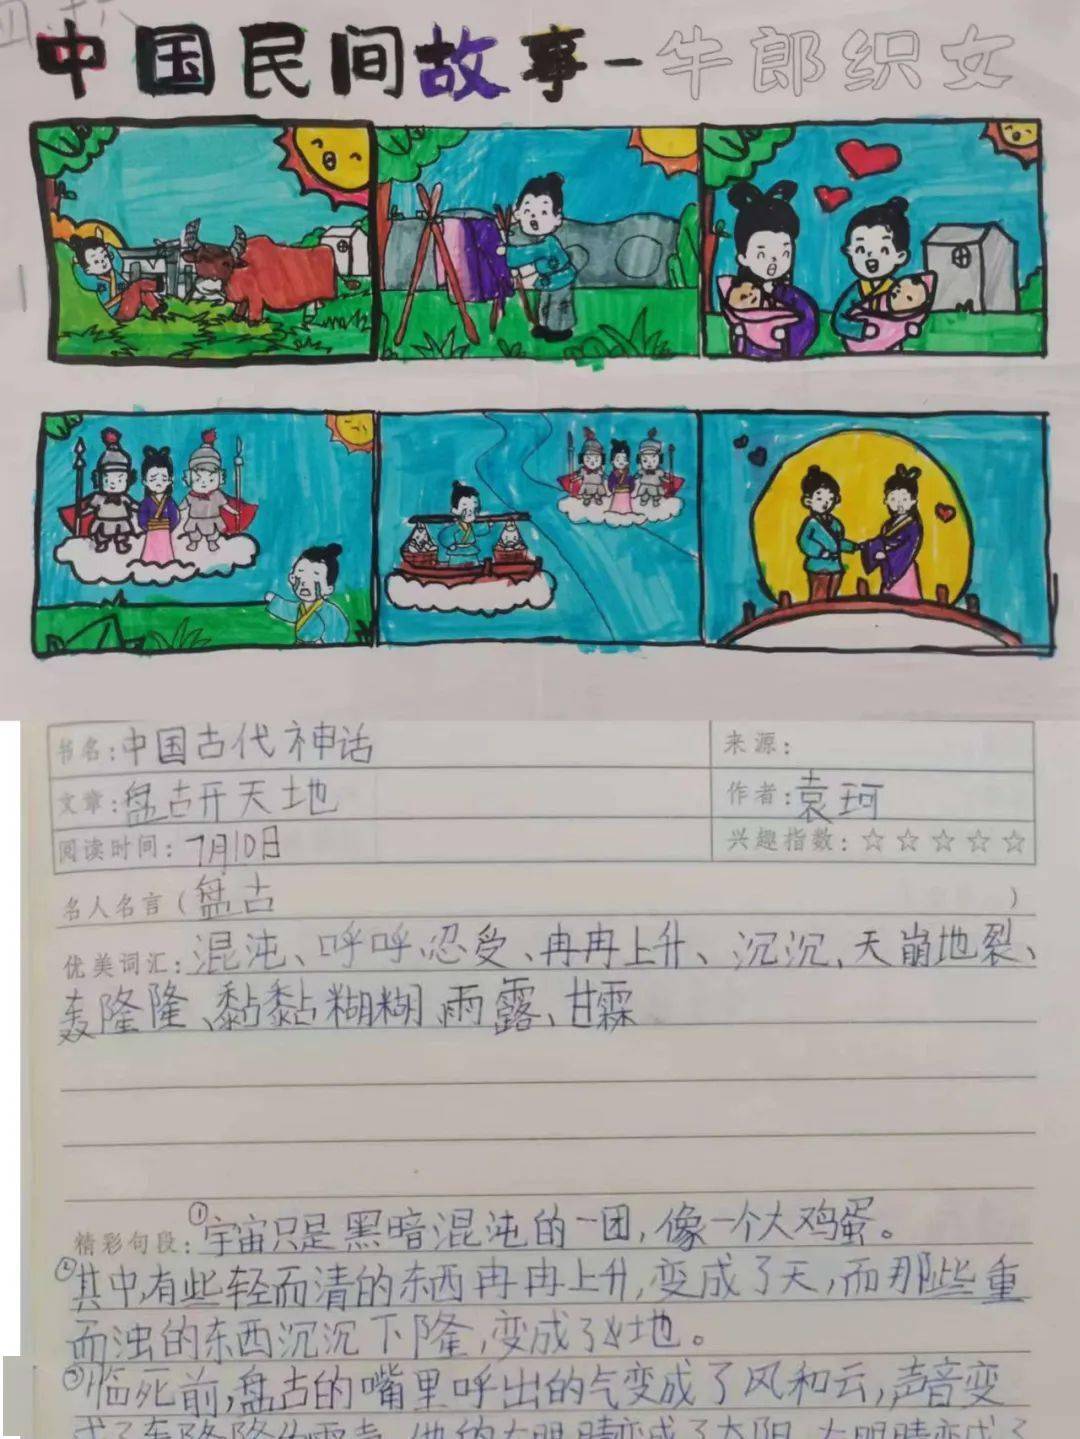 四
中国民间故事-牛郎织女
书名:中国古代神话
来源:
文章:盘古开天地
作者:袁珂
阅读时间:7月10日
兴趣指数:☆☆☆☆☆
名人名言(盘古)
优美词汇:混沌、呼呼、忍受、冉冉上升、沉沉、天崩地裂、
轰隆隆、黏黏糊糊、雨露、甘霖
精彩句段:①宇宙只是黑暗混沌的一团,像一个大鸡蛋。
②其中,有些轻而清的东西冉冉上升,变成了天,而那些重
而浊的东西沉沉下降,变成了地。
③临死前,盘古的嘴里呼出的气变成了风和云,声音变